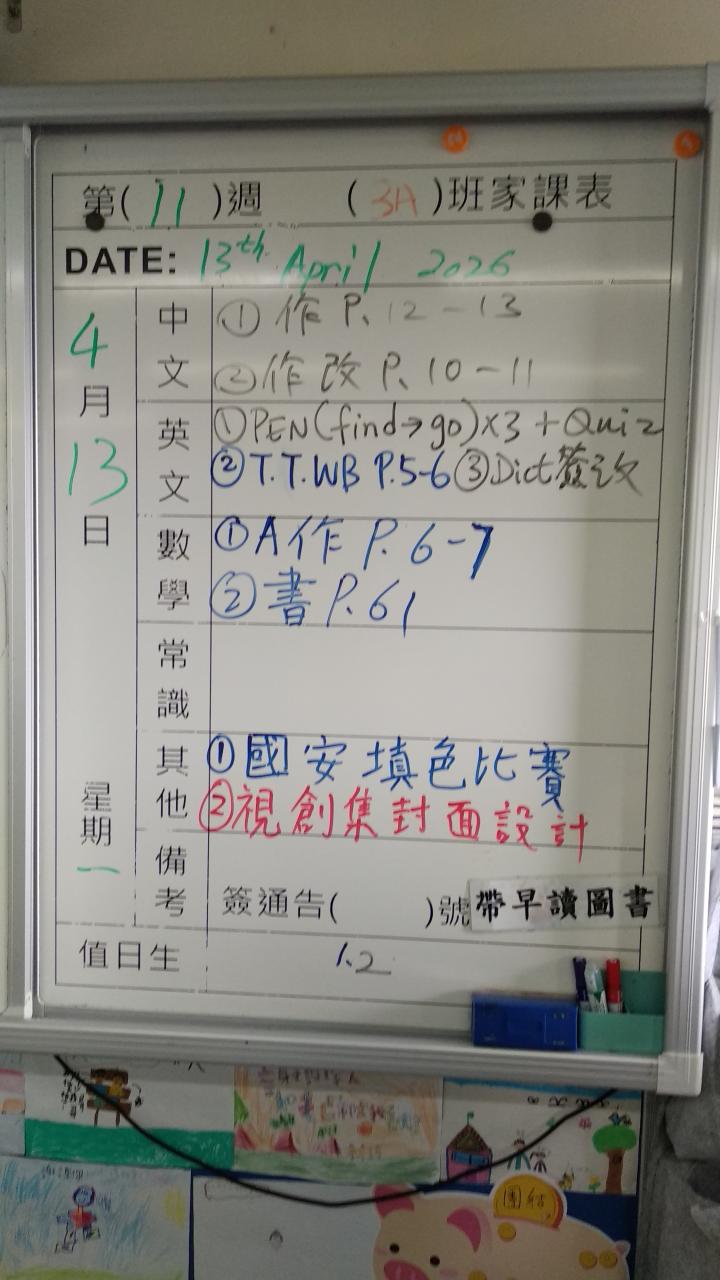 第(11)週 (3A)班家課表
DATE: 13th April 2026
4月13日
星期一
中文
①作 P.12-13
②作改 P.10-11
英文
①PEN(find→go)×3+Quiz
②T.T.WB P.5-6 ③Dict簽改
數學
①A作 P.6-7
②書 P.61
常識
其他
①國安填色比賽
②視創集封面設計
備考
簽通告( )號 帶早讀圖書
值日生
1.2
團結